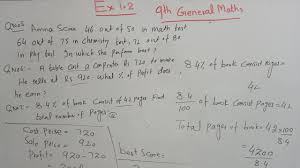 Ex 1.2
9th General Maths
Ques Amna Score 46 out of 50 in math test
64 out of 75 in Chemistry test, 72 out of 80
in phy test In which she perform best?
Ques: A table cost a Carpenter Rs 720 to make
He sells at Rs 920. what % of Profit does
he earn?
Que: 8.4% of book consist of 42 pages Find
total number of Pages
Cost Price = 720
Sale Price = 920
Profit = 920-720
best Score =
8.4% of book Consist Pages =
42
8.4/100 of book consist pages = 42
Total pages of book = 42×100/8.4
= 4200/8.4